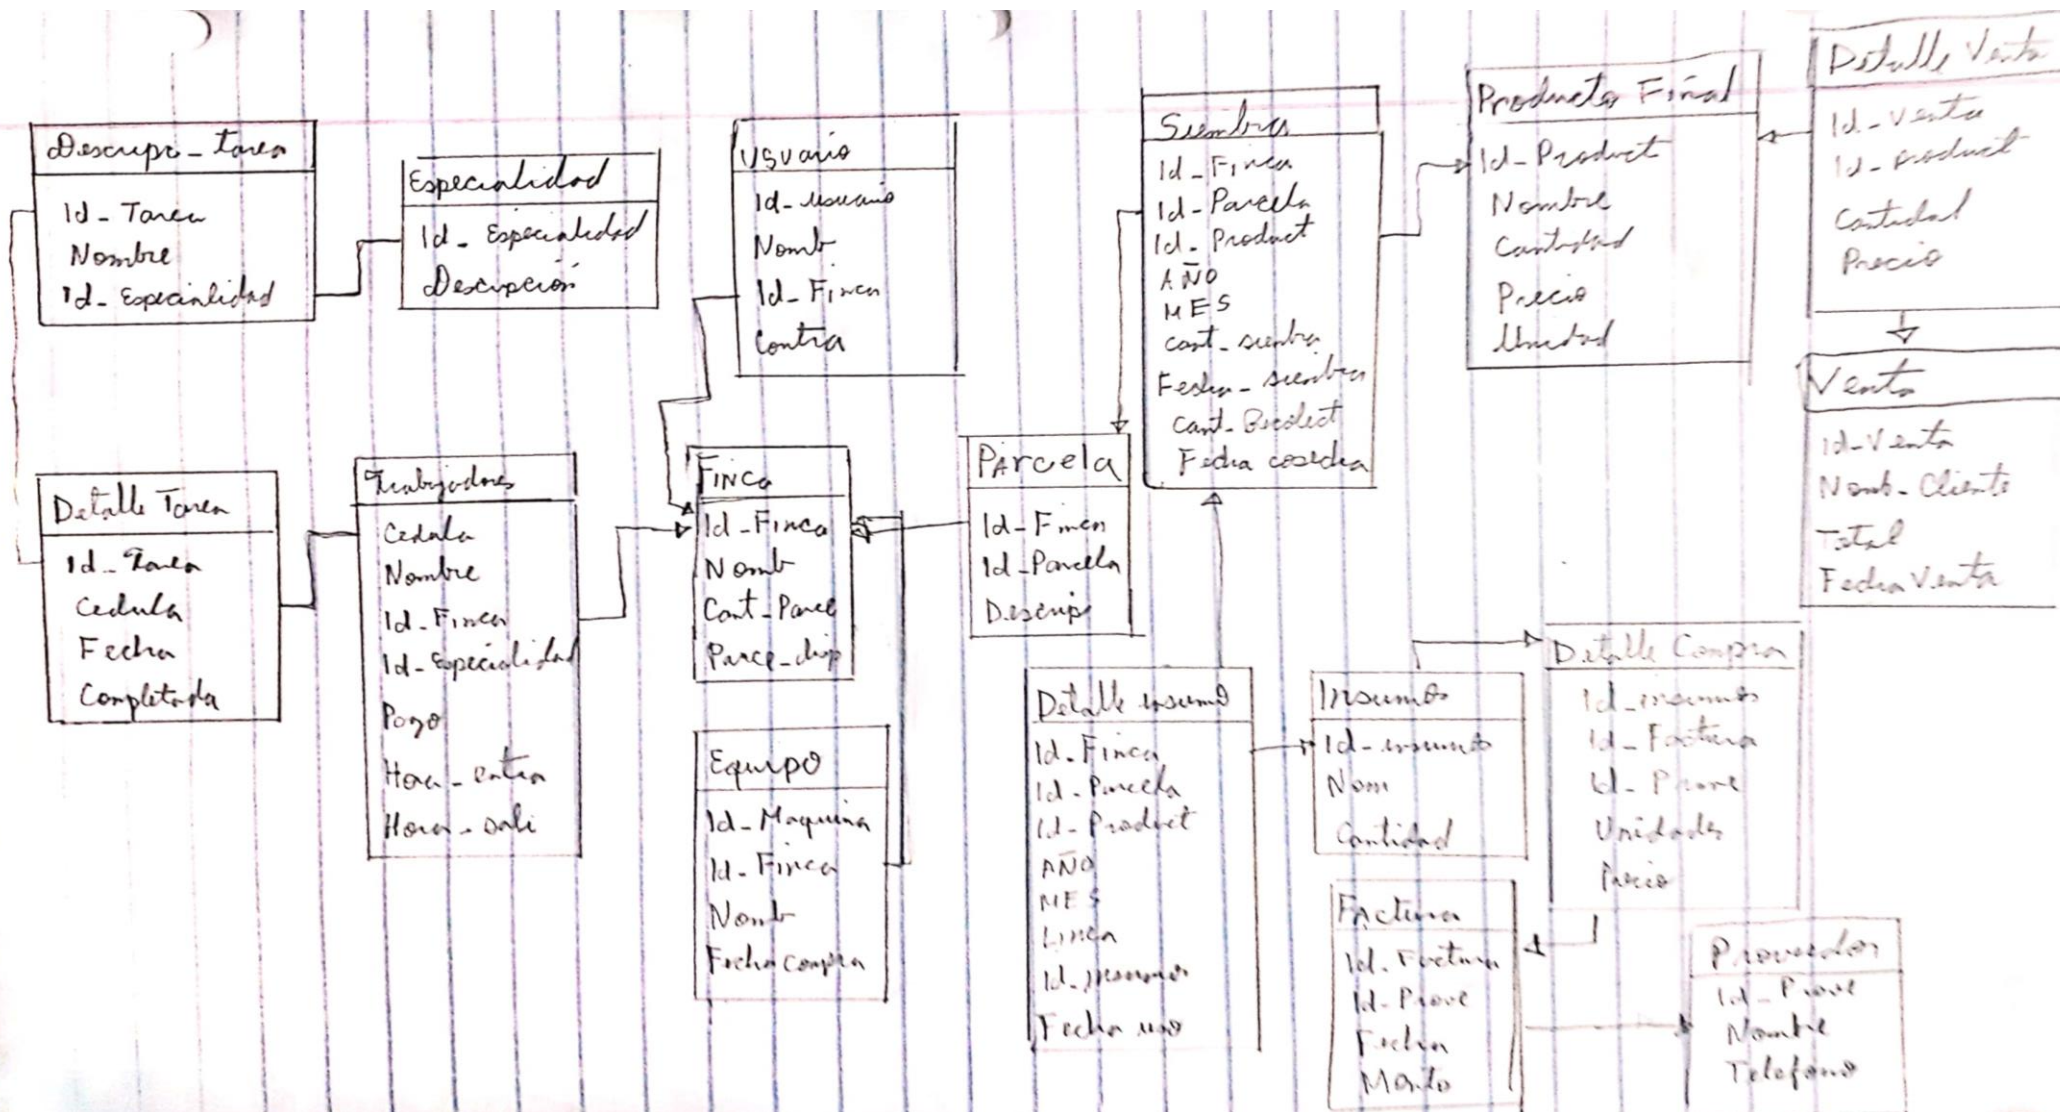 Descripc_tarea
Id_Tarea
Nombre
Id_Especialidad
Especialidad
Id_Especialidad
Descripción
Usuario
Id_usuario
Nomb
Id_Finca
Contra
Siembra
Id_Finca
Id_Parcela
Id_Product
AÑO
MES
cant_siembra
Fecha_siembra
Cant_Recolect
Fecha cosecha
Producto Final
Id_Product
Nombre
Cantidad
Precio
Unidad
Detalle Venta
Id_Venta
Id_product
Cantidad
Precio
Venta
Id_Venta
Nomb_Cliente
Total
Fecha Venta
Detalle Tarea
Id_Tarea
Cedula
Fecha
Completada
Trabajadores
Cedula
Nombre
Id_Finca
Id_Especialidad
Pago
Hora_entra
Hora_sali
Finca
Id_Finca
Nomb
Cant_Parce
Parce_disp
Parcela
Id_Finca
Id_Parcela
Descrip
Equipo
Id_Maquina
Id_Finca
Nomb
Fecha compra
Detalle insumo
Id_Finca
Id_Parcela
Id_Product
AÑO
MES
Linea
Id_insumo
Fecha uso
Insumos
Id_insumo
Nom
Cantidad
Detalle Compra
Id_insumos
Id_Factura
Id_Prove
Unidades
Precio
Factura
Id_Factura
Id_Prove
Fecha
Monto
Proveedor
Id_Prove
Nombre
Telefono